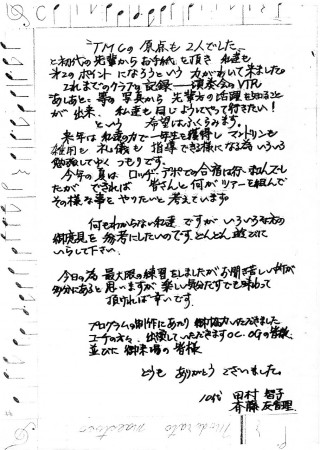 TMCの原点も2人でした。
と初代の先輩からお手紙を頂き 私達も
第2のポイントになろうという力がわいて来ました。
これまでのクラブの記録―演奏会のVTR
等の写真から先輩方の活躍を知ること
が出来、私達も同じようにやって行きたい!
という 希望はふくらみます。
来年は私達の力で一年生を獲得し マンドリンも
雑用も 礼儀も 指導できる様になる為いろいろ
勉強してゆくつもりです。
今年の夏は での合宿は行いませんでし
たができれば 皆さんと何かツアーを組んで
その様な事も やりたいと考えています。
何もわからない私達ですがいろいろな方の
御意見を参考にしたいのです。どんどん遊びに
いらして下さい。
今日の為 最大限の練習をしましたがお聞き苦しい所が
多分にあると思いますが 楽しい気分だけでも味わって
頂ければ幸いです。
プログラムの制作にあたり御協力いただきました
コーチの方々、出演していただきますOC.OGの皆様
並びに御来場の皆様
どうも ありがとう ございました。
10代 田村 智子
斉藤
Moderato maestoso